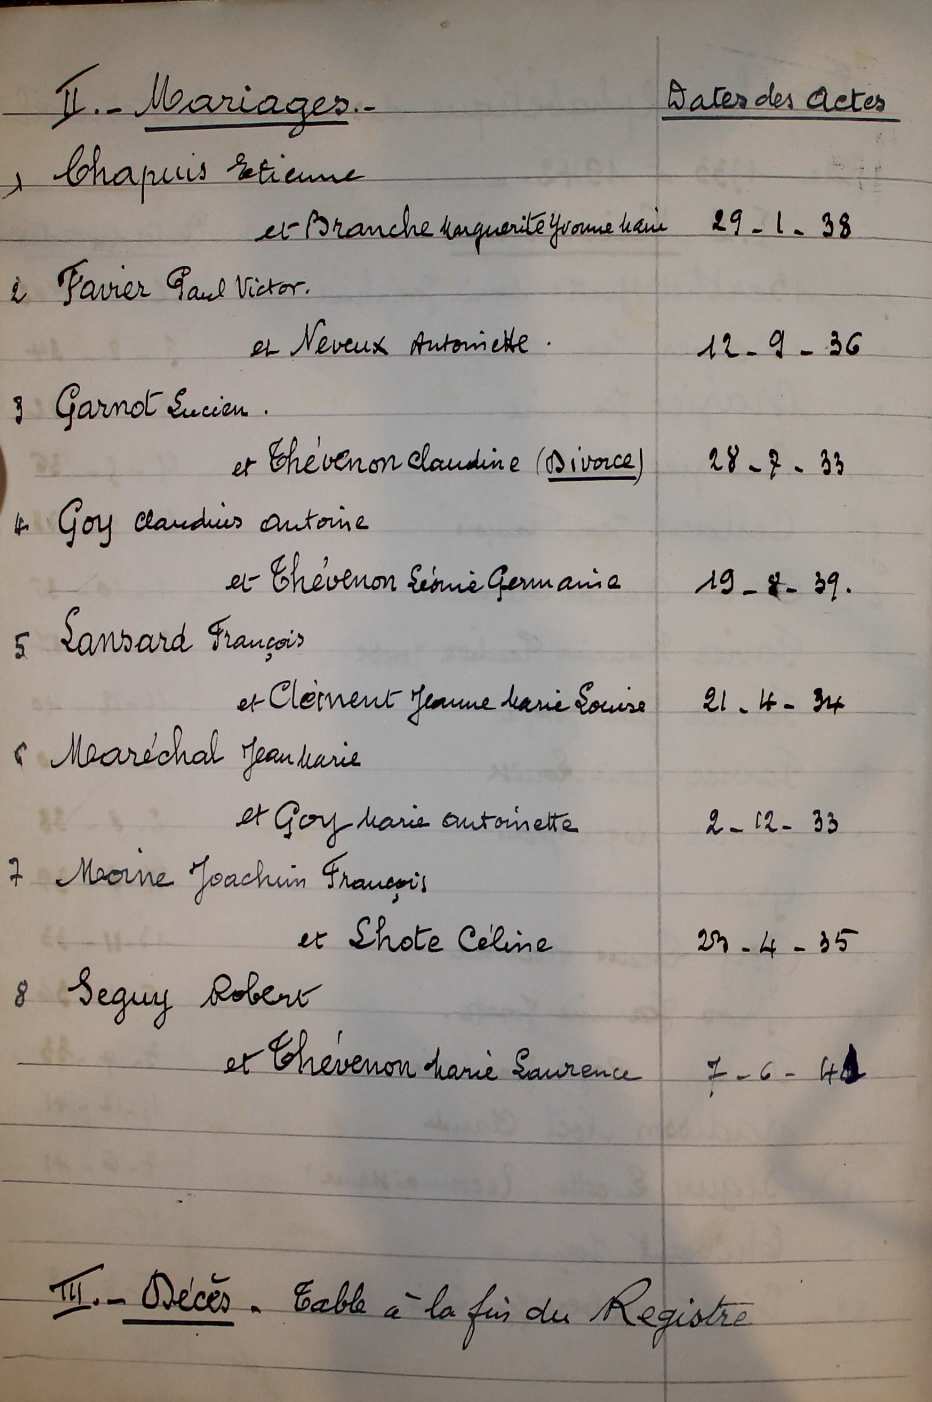 II.- Mariages.- Dates des Actes
1 Chapuis Etienne
et Branche Marguerite Yvonne Marie 29-1-38
2 Favier Paul Victor.
et Neveux Antoinette. 12-9-36
3 Garnot Lucien.
et Thévenon Claudine (Divorce) 28-7-33
4 Goy Claudius Antoine
et Thévenon Léonie Germaine 19-8-39.
5 Lansard François
et Clément Jeanne Marie Louise 21-4-34
6 Maréchal Jean Marie
et Goy Marie Antoinette 2-12-33
7 Moine Joachim François
et Lhote Céline 23-4-35
8 Seguy Robert
et Thévenon Marie Laurence 7-6-41
III.- Décès. Table à la fin du Registre